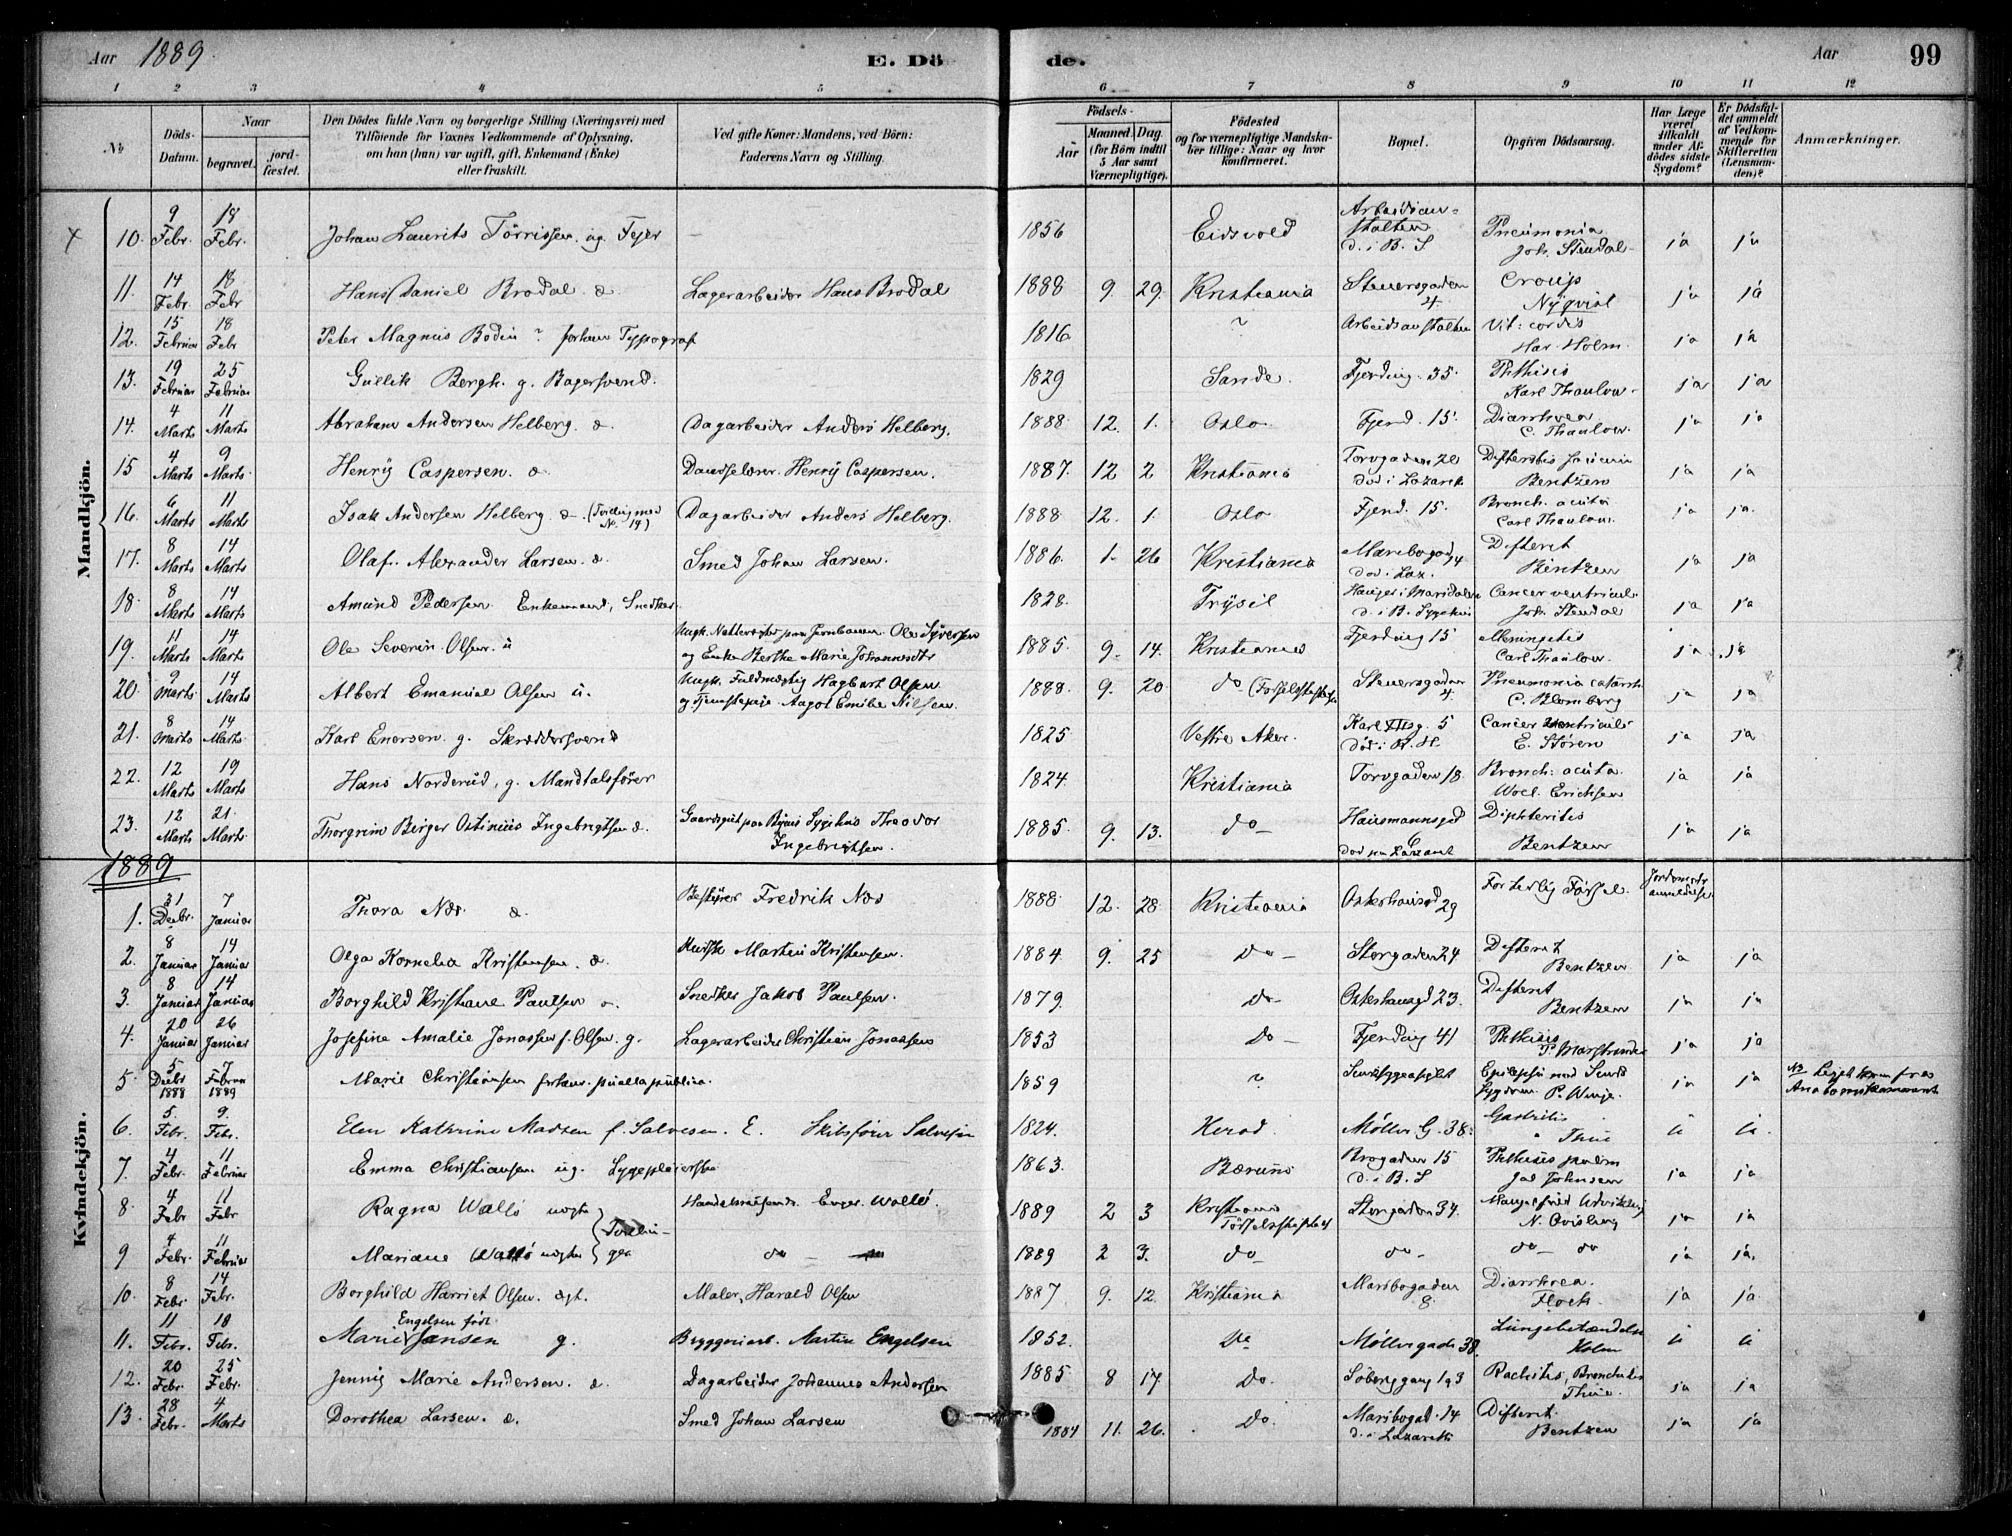 Aar 1889.
E. Dö
de.
Aar
99
1 2 3 4 5 6 7 8 9 10 11 12
№
Döds-Datum.
Naar
begravet.
jordfæstet.
Den Dödes fulde Navn og borgerlige Stilling (Næringsvei) med
Tilföiende för Voxnes Vedkommende af Oplysning,
om han (hun) var ugift, gift, Enkemand (Enke)
eller fraskilt.
Ved gifte Koner: Mandens, ved Börn:
Faderens Navn og Stilling.
Födsels-
Aar
Maaned. Dag.
(for Börn indtil
5 Aar samt
Værnepligtige).
Födested
og for værnepligtige Mandskaber tillige: Naar og hvor
Konfirmeret.
Bopæl.
Opgiven Dödsaarsag.
Har Læge
været
tilkaldt
under Afdödes sidste
Sygdom?
Er Dödsfaldet anmeldt
af Vedkommende for
Skifteretten
(Lensmanden)?
Anmærkninger.
Mandkjön.
10. 9 Febr. 18 Febr. Johan Laurits Törrissen. ug. Fejer 1856 Eidsvold Arbeidsanstalten d. i B. S Pneumonia Joh. Stendal ja ja
11. 14 Febr. 18 Febr Hans Daniel Brodal. d. Lagerarbeider Hans Brodal 1888 9. 29. Kristiania Steenersgaden 4. Croup Nyqvist ja ja
12. 15 Februar 18 Febr Peter Magnus Bodin ? forhen Typograf 1816 ? Arbeidsanstalten Vit: cordis Har. Holm. ja ja
13. 19 Februar 25 Februar Gullik Bergh. g. Bagersvend. 1829 Sande. Fjerding. 35. Phthisis Karl Thaulow. ja ja
14. 4 Marts 11 Marts Abraham Andersen Helberg. d. Dagarbeider Anders Helberg. 1888 12. 1. Oslo Fjerd. 15. Diarrhoea C. Thaulow. ja ja
15 4 Marts 9 Marts Henry Caspersen. d. Dandselærer Henry Caspersen. 1887. 12 2 Kristiania Torvgaden 20 död i Lazareth Bentzen ja ja
16. 6 Marts 11 Marts Isak Andersen Helberg d. (Tvilling med No. 14) Dagarbeider Anders Helberg. 1888 12. 1. Oslo Fjerd. 15. Bronch. acuta Carl Thaulow. ja ja.
17. 8 Marts 14 Marts Olaf. Alexander Larsen. d. Smed Johan Larsen. 1886. 1. 26 Kristiania Maribogad 14 död i Laz. Difterit Bentzen ja ja
18. 8 Marts 14 Marts Amund Pedersen Enkemand, Snedker. 1828. Trysil Hauger i Maridalen d. i B. Sygehus Cancer ventricul. Joh. Stendal ja ja
19. 11 Marts 14 Marts Ole Severin Olsen. u Ole Syversen og Enke Berthe Marie Johannesdtr 1885. 9. 14. Kristiania Fjerding 15 Meningitis Carl Thaulow. ja ja
20. 9 Marts 14 Marts Albert Emanuel Olsen u. Ungk. Fuldmægtig Hagbart Olsen og Tjenestepige Aagot Emilie Nilsen. 1888. 9. 20 do (Fødselsstiftelsen) Steenersgaden 4. Pneumonia catarrh C. Blomberg ja ja
21. 8 Marts 14 Marts Karl Enersen g. Skræddersvend 1825 Vestre Aker. Karl XIIsg. 5 Död i R. H. Cancer ventriculi E. Stören ja ja
22. 12 Marts 19 Marts Hans Norderud, g. Mandtalsfører 1824. Kristiania Torvgaden 18. Bronch: acuta. Erichsen ja ja
23. 12 Marts 21. Marts Thorgrim Birger Ostinius Ingebrigtsen d. Gaardsgut paa Byens Sygehus Theodor Ingebrigtsen. 1885. 9. 13. do Hausmannsgd 6 död paa Lazaret Diphteritis Bentzen ja ja
1889
Kvindekjön.
1. 31 Decbr. 7 Januar Thora Næs. d. Bestyrer Fredrik Næs 1888 12. 28 Kristiania Osterhausgd 29 For tidlig Fødsel. Jordemoder anmeldelse.
2. 8 Januar 14 Januar Olga Kornelia Kristensen. d. Kudsk Martin Kristensen. 1884 9. 25 do Storgaden 24 Difterit Bentzen ja ja
3. 8 Januar 14 Januar Borghild Kristiane Paulsen d. Snedker Jakob Paulsen. 1879. do Osterhausgd 23. Difterit Bentzen ja ja
4. 20 Januar 26 Januar Josefine Amalie Jonassen f. Olsen. g. Lagerarbeider Christian Jonassen 1853 do Fjerding 41 Phthisis P. Marstrander ja ja
5. 5 Decbr 1888 7 Februar 1889 Marie Christiansen forhen. puella publica. 1859 ? Sindssygeasylet Epilepsi med Sinds Sygdom P. Winge. ja ja NB Liget kom fra Anatomikammeret.
6. 5. Febr. 9. Febr. Elen Kathrine Madsen f. Salvesen. E. Skibsfører Salvesen 1824. Herad. Möller G. 38. Gastritis Thue ja ja.
7. 4 Febr. 11 Februar Emma Christiansen ug. Sygepleierske 1863. Bærum Brogaden 15 d. i B. S Phthisis pulm Johnsen ja ja
8. 4 Febr 11 Febr Ragna Wallö uægte Handelsreisende Enger Wallö. 1889 2 3 Kristiania Födselsstiftelsen Storgaden 34. Mangelfuld Udvikling N. Qvisling ja ja
9 4 Febr. 11 Februar Mariane Wallö uægte Tvillinger do 1889 2 3. do do do do ja ja.
10. 8 Febr. 14 Febr. Borghild Harriet Olsen. ægt. Maler, Harald Olsen 1887 9. 12. Kristiania Maribogaden 8. Diarrhoea. Flock. ja ja
11. 11 Febr. 18 Febr. Marie Engelsen födt Jansen g. Bryggeriarb. Martin Engelsen 1852. do Möllergade 38. Lungebetændelse Holm ja ja
12. 20 Febr 25 Febr. Jenny Marie Andersen. d. Dagarbeider Johannes Andersen 1885 8 17 Do. Söberggang 1a3 Rachitis, Bronchitis Thue ja ja
13. 28 Febr. 4 Marts Dorothea Larsen. d. Smed Johan Larsen 1884 11. 26. Do. Maribogad. 14 d. i Lazareth Difterit. Bentzen ja ja